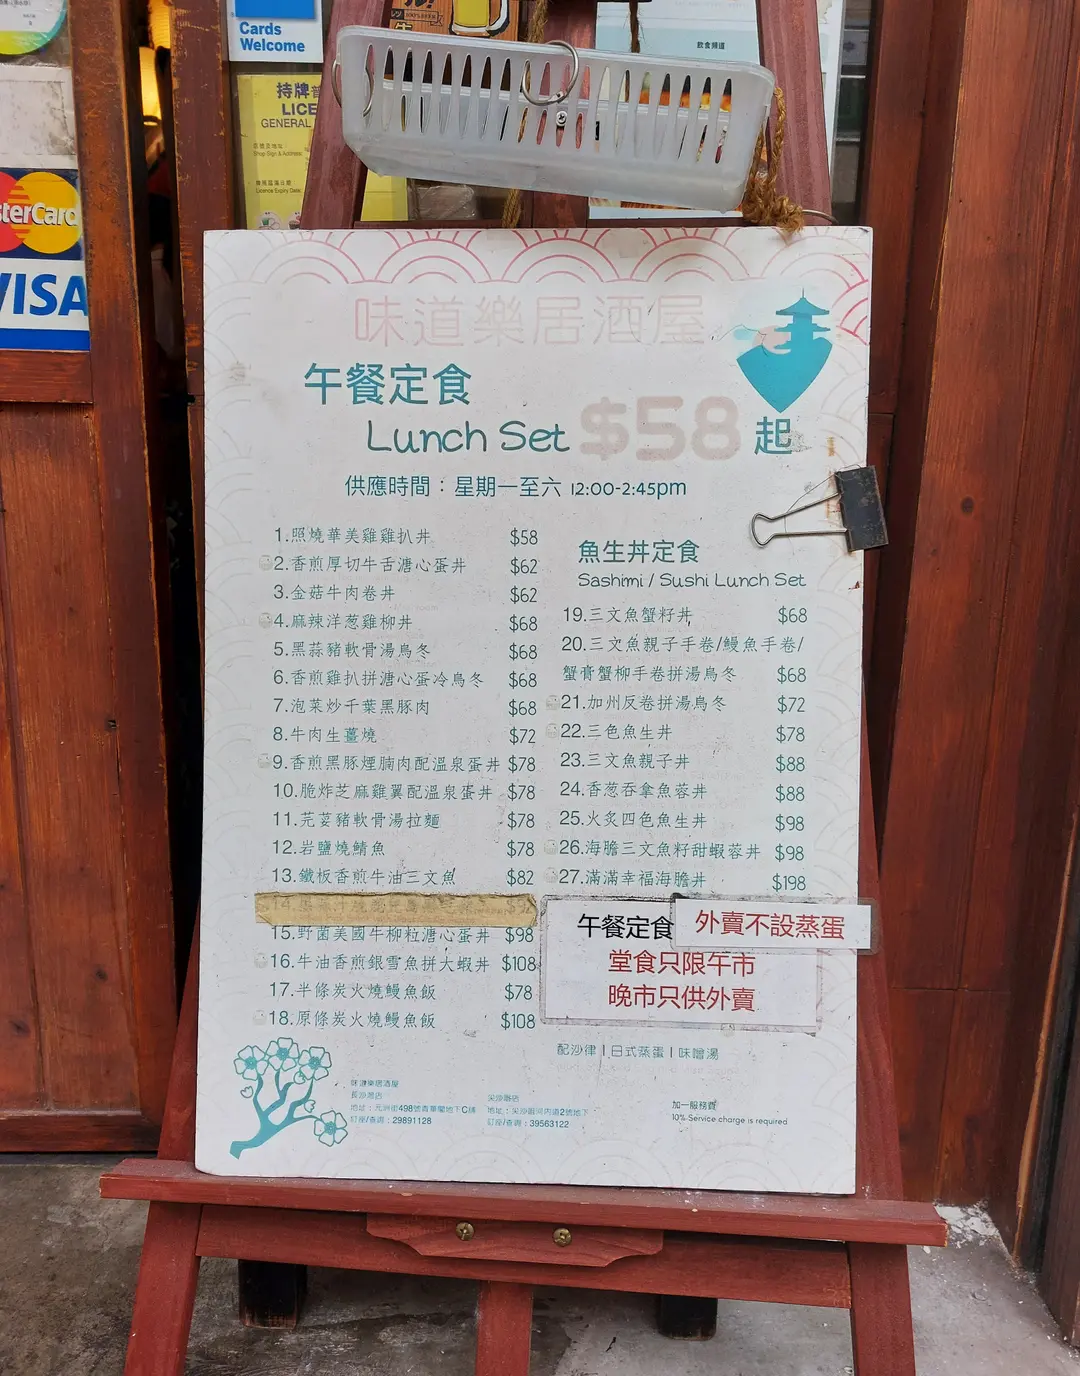 Cards
Welcome
持牌
LICE
GENERAL
Shop Sign & Address
Licence Expiry Date
飲食頻道
sterCard
VISA
味道樂居酒屋
午餐定食
Lunch Set $58 起
供應時間：星期一至六 12:00-2:45pm
1.照燒華美雞雞扒丼 $58
2.香煎厚切牛舌溏心蛋丼 $62
3.金菇牛肉卷丼 $62
4.麻辣洋葱雞柳丼 $68
5.黑蒜豬軟骨湯烏冬 $68
6.香煎雞扒拼溏心蛋冷烏冬 $68
7.泡菜炒千葉黑豚肉 $68
8.牛肉生薑燒 $72
9.香煎黑豚煙腩肉配溫泉蛋丼 $78
10.脆炸芝麻雞翼配溫泉蛋丼 $78
11.芫荽豬軟骨湯拉麵 $78
12.岩鹽燒鯖魚 $78
13.鐵板香煎牛油三文魚 $82
14.
15.野菌美國牛柳粒溏心蛋丼 $98
16.牛油香煎銀雪魚拼大蝦丼 $108
17.半條炭火燒鰻魚飯 $78
18.原條炭火燒鰻魚飯 $108
魚生丼定食
Sashimi / Sushi Lunch Set
19.三文魚蟹籽丼 $68
20.三文魚親子手卷/鰻魚手卷/
蟹膏蟹柳手卷拼湯烏冬 $68
21.加州反卷拼湯烏冬 $72
22.三色魚生丼 $78
23.三文魚親子丼 $88
24.香葱吞拿魚蓉丼 $88
25.火炙四色魚生丼 $98
26.海膽三文魚籽甜蝦蓉丼 $98
27.滿滿幸福海膽丼 $198
午餐定食 外賣不設蒸蛋
堂食只限午市
晚市只供外賣
配沙律 | 日式蒸蛋 | 味噌湯
味道樂居酒屋
長沙灣店
地址：元洲街498號青華閣地下C舖
訂座/查詢：29891128
尖沙咀店
地址：尖沙咀河內道2號地下
訂座/查詢：39563122
加一服務費
10% Service charge is required